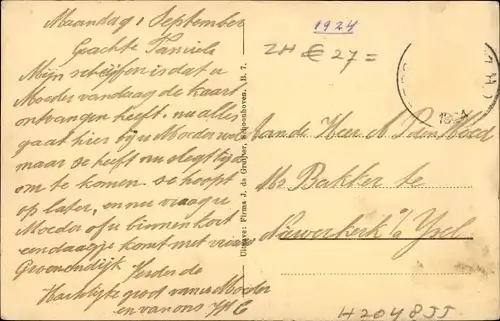 Maandag 1 September
Geachte Familie
Mijn schrijfen is dat u
Moeder vandaag de kaart
ontvangen heeft. nu alles
gaat hier bij u Moeder wel
maar ze heeft nu slegt tijd
om te komen. ze hoopt
op later, en nu vraagt u
Moeder of u binnen kort
een daagje komt met
Groenendijk. Verder de
Hartelijke groet van u Moeder
en van ons
Uitgave: Firma J. de Gruijter, Schoonhoven. B. 7.
1924
ZH € 27=
Aan de Heer A. P. den Hoed
Mr Bakker te
Nieuwerkerk a/d Ysel
H2048JJ